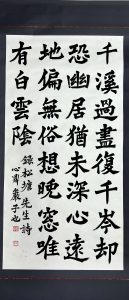 千溪過盡復千岑却
恐幽居猶未深心遠
地偏無俗想晚窓唯
有白雲陰
錄松塘先生詩
心齋嚴子也